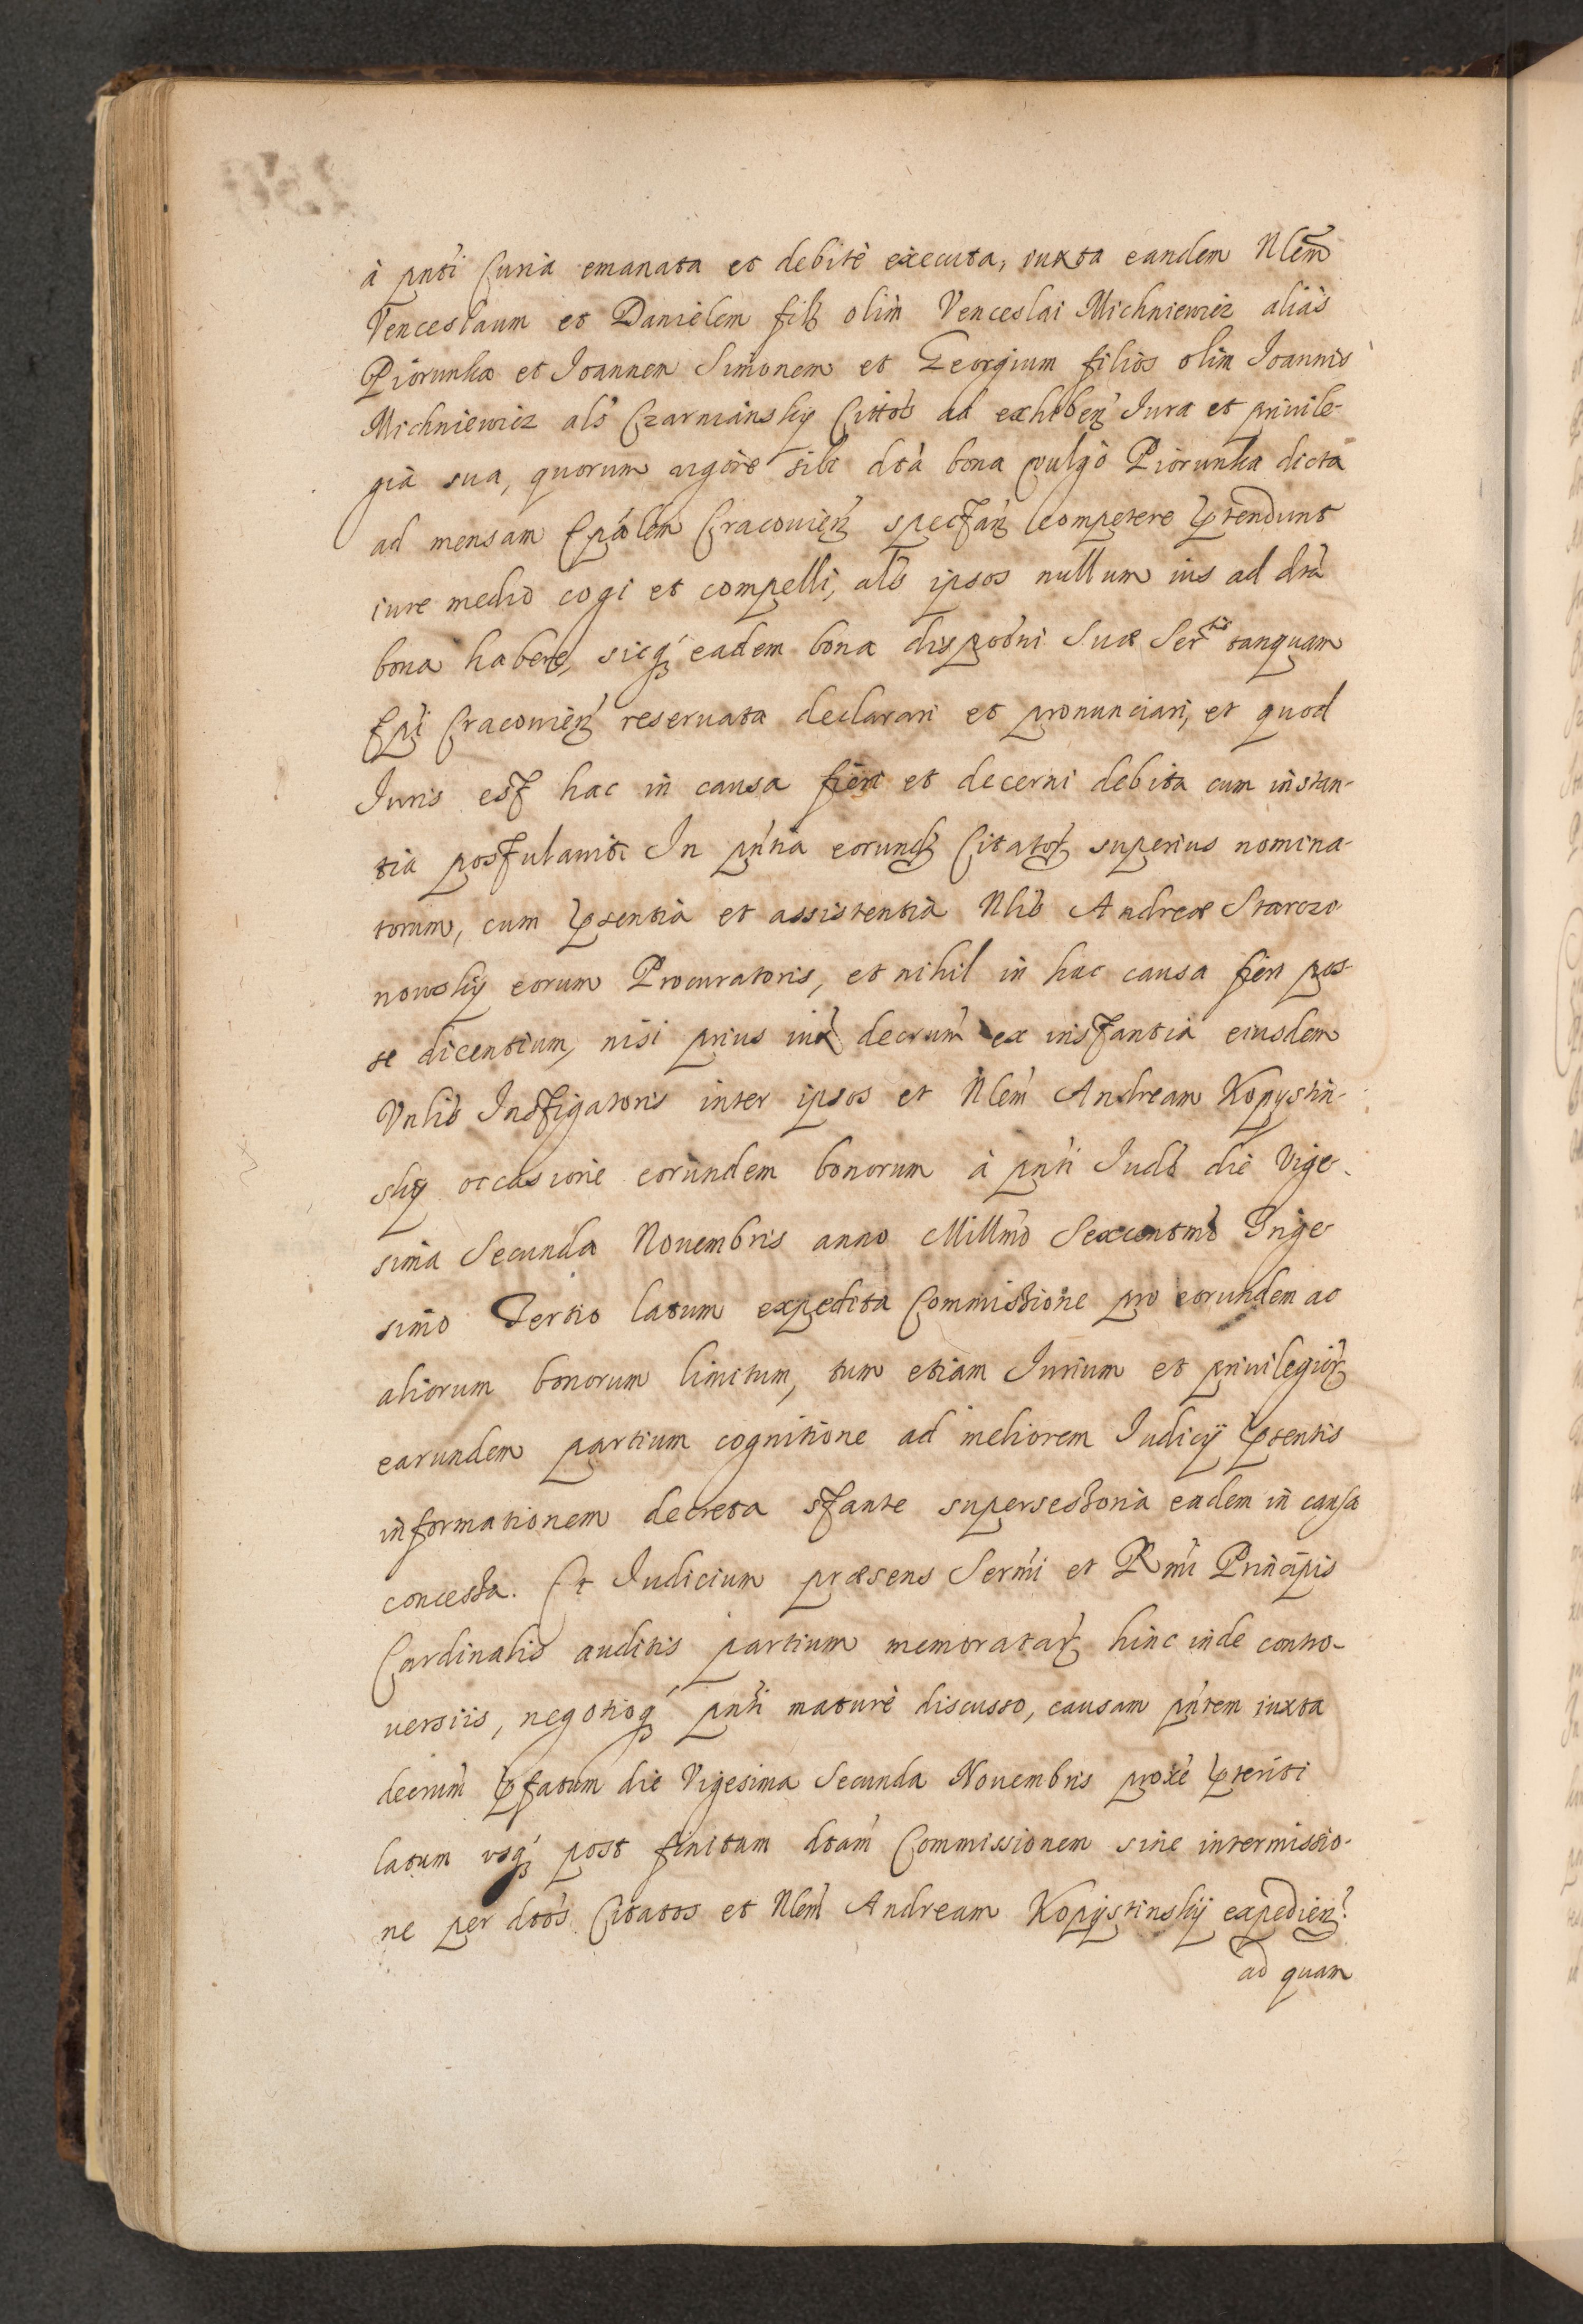 à pnti Curia emanata et debitè executa, iuxta eandem Nlem
Venceslaum et Danielem filȝ olim Venceslai Michniewicz aliàs
Piorunka et Ioannem Simonem et Georgium filios olim Ioannis
Michniewicz als Czarniansky Cittos ad exhibenȝ Iura et priuile-
gia sua, quorum uigore sibi dta bona vulgò Piorunka dicta
ad mensam Epalem Cracouienȝ spectanȝ competere ꝑtendunt
iure medio cogi et compelli, als ipsos nullum ius ad dta
bona habere, sicqȝ eadem bona dispotni Suæ Sertis tanquam
Epi Cracouienȝ reseruata declarari et pronunciari, et quod
Iuris est hac in causa fieri et decerni debita cum instan-
tia postulauit. In pntia eorundȝ Citatorȝ superius nomina-
torum, cum ꝑsentia et assistentia Nlis Andreæ Starozo
nowsky eorum Procuratoris, et nihil in hac causa fieri pos-
se dicentium, nisi prius iuxȝ decrum ex instantia eiusdem
Vnlis Instigatoris inter ipsos et Nlem Andream Kopystin-
sky occasione eorundem bonorum à pnti Iudo die Vige-
sima Secunda Nouembris anno Millmo Sexcentmo Trige
simo Tertio latum expedita Commissione pro eorundem ac
aliorum bonorum limitum, tum etiam Iurium et priuilegiorȝ
earundem partium cognitione ad meliorem Iudicij ꝑsentis
informationem decreta stante supersessoria eadem in causa
concessa. Et Iudicium præsens Sermi et Rmi Principis
Cardinalis auditis partium memoratarȝ hinc inde contro-
uersiis, negotioqȝ pnti maturè discusso, causam pntem iuxta
decrum ꝑfatum die Vigesima Secunda Nouembris proxè ꝑteriti
latum vsqȝ post finitam dtam Commissionem sine intermissio-
ne per dtos Citatos et Nlem Andream Kopystinsky expedienȝ
ad quam